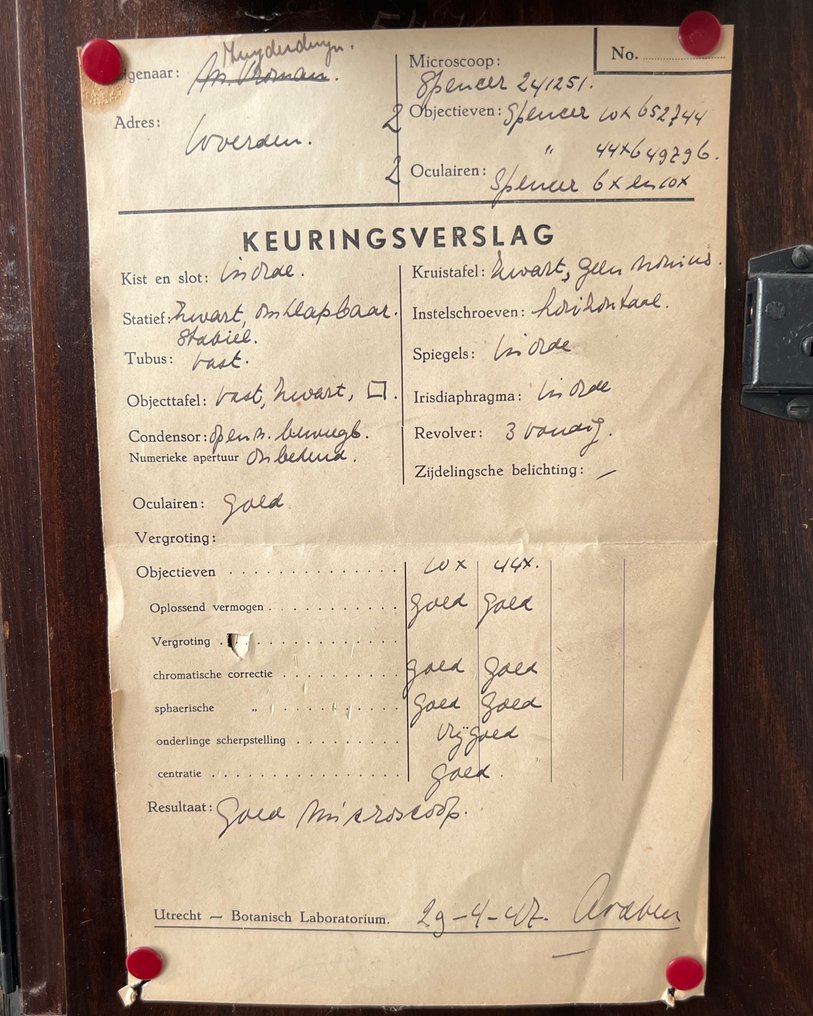 Muyderduyn.
genaar:
Adres: Woerden.
Microscoop:
Spencer 241251.
No.
2 Objectieven: Spencer 10x 652744
" 44x 649796.
2 Oculairen: Spencer 6x en 10x
KEURINGSVERSLAG
Kist en slot: in orde.
Statief: zwart, omklapbaar.
stabiel.
Tubus: vast.
Objecttafel: vast, zwart, □.
Condensor: op en n. beweegb.
Numerieke apertuur onbekend.
Kruistafel: zwart, geen nonius.
Instelschroeven: horizontaal.
Spiegels: in orde
Irisdiaphragma: in orde
Revolver: 3 voudig.
Zijdelingsche belichting: —
Oculairen: goed
Vergroting:
Objectieven . . . . . . . . . . . . . . 10x 44x.
Oplossend vermogen . . . . . . . . . . . . goed goed
Vergroting . . . . . . . . . . . . . . . .
chromatische correctie . . . . . . . . . . . goed goed
sphaerische " . . . . . . . . . . . goed goed
onderlinge scherpstelling . . . . . . . . . . vrij goed
centratie . . . . . . . . . . . . . . . . . goed.
Resultaat: Goed microscoop.
Utrecht — Botanisch Laboratorium. 29-4-47.